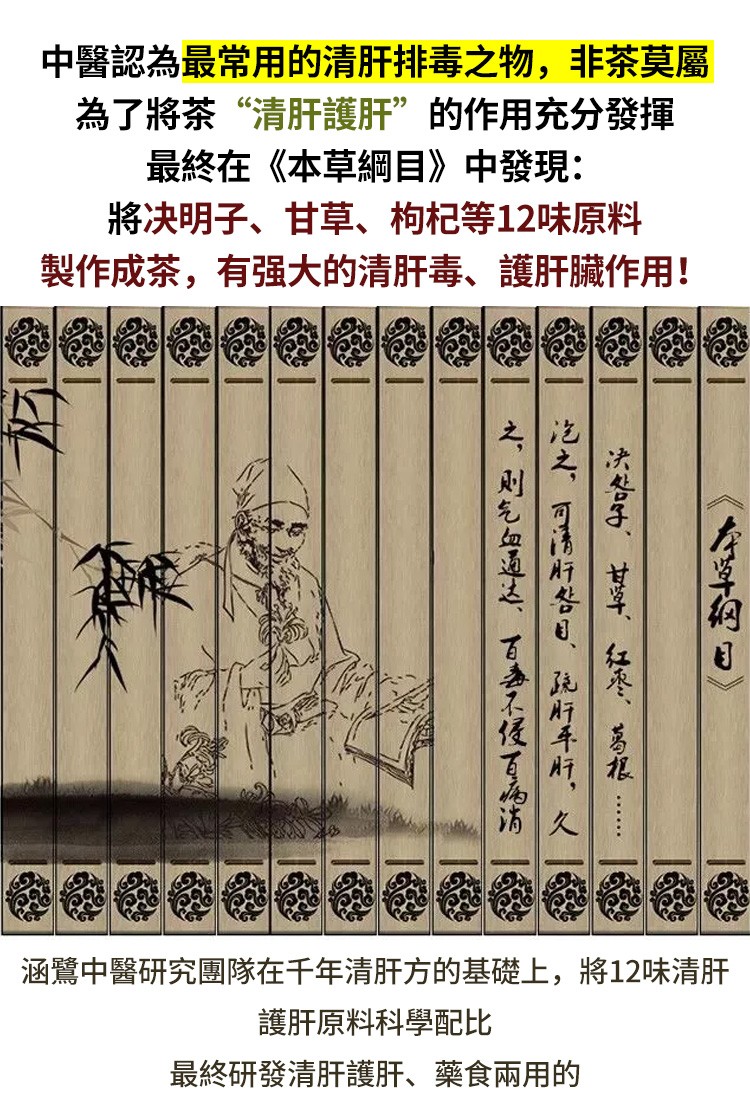 中醫認為最常用的清肝排毒之物，非茶莫屬
為了將茶“清肝護肝”的作用充分發揮
最終在《本草綱目》中發現：
將决明子、甘草、枸杞等12味原料
製作成茶，有强大的清肝毒、護肝臟作用！
《本草纲目》
决明子、甘草、红枣、葛根……
泡之，可清肝明目、疏肝平肝，久
之，则气血通达、百毒不侵百病消
涵鷺中醫研究團隊在千年清肝方的基礎上，將12味清肝
護肝原料科學配比
最終研發清肝護肝、藥食兩用的